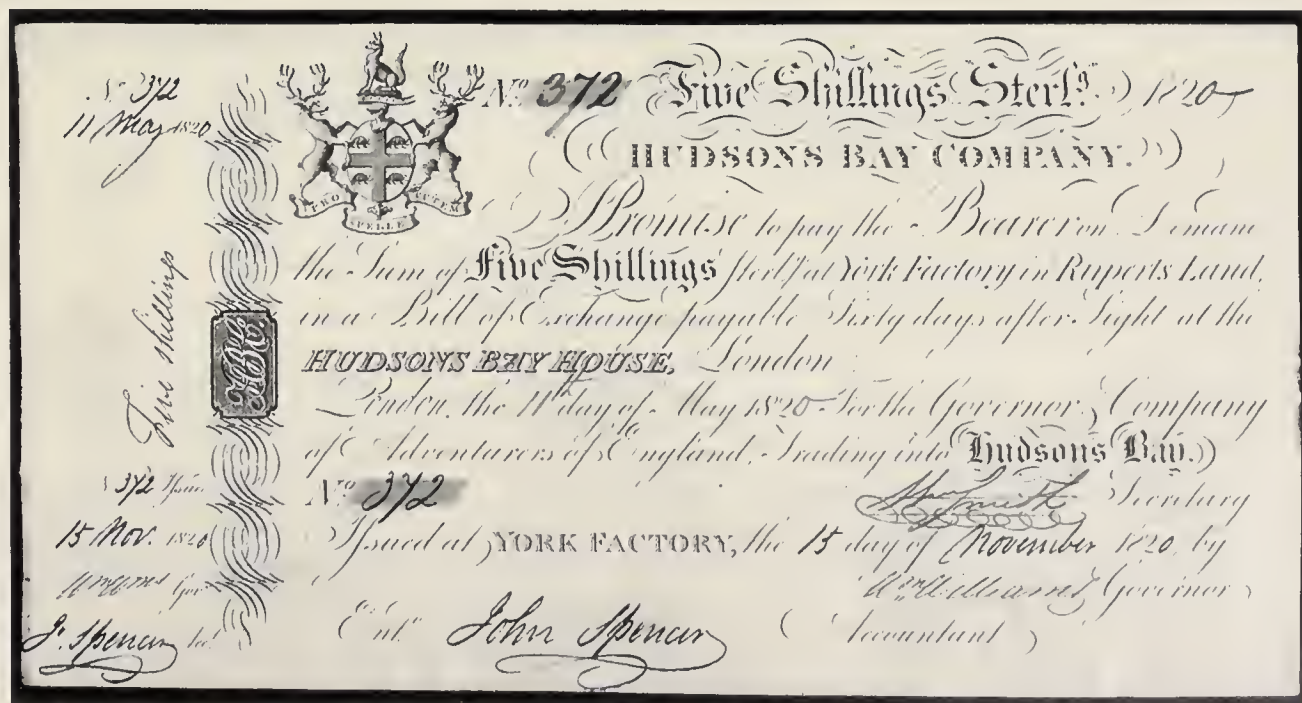 No 372
11 May 1820
Five shillings
372 Issued
15 Nov. 1820
Wm Williams Govr
J. Spencer Acct
PRO PELLE CUTEM
HBC
No. 372 Five Shillings Sterlg. 1820
HUDSONS BAY COMPANY.
I Promise to pay the Bearer on Demand
the Sum of Five Shillings Sterlg at York Factory in Ruperts Land,
in a Bill of Exchange payable Sixty days after Sight at the
HUDSONS BAY HOUSE, London
London, the 11th day of May 1820 For the Governor, Company
of Adventurers of England, Trading into Hudsons Bay.
No. 372
Wm Smith Secretary
Issued at YORK FACTORY, the 15 day of November 1820, by
Wm Williams Governor
Entd John Spencer Accountant